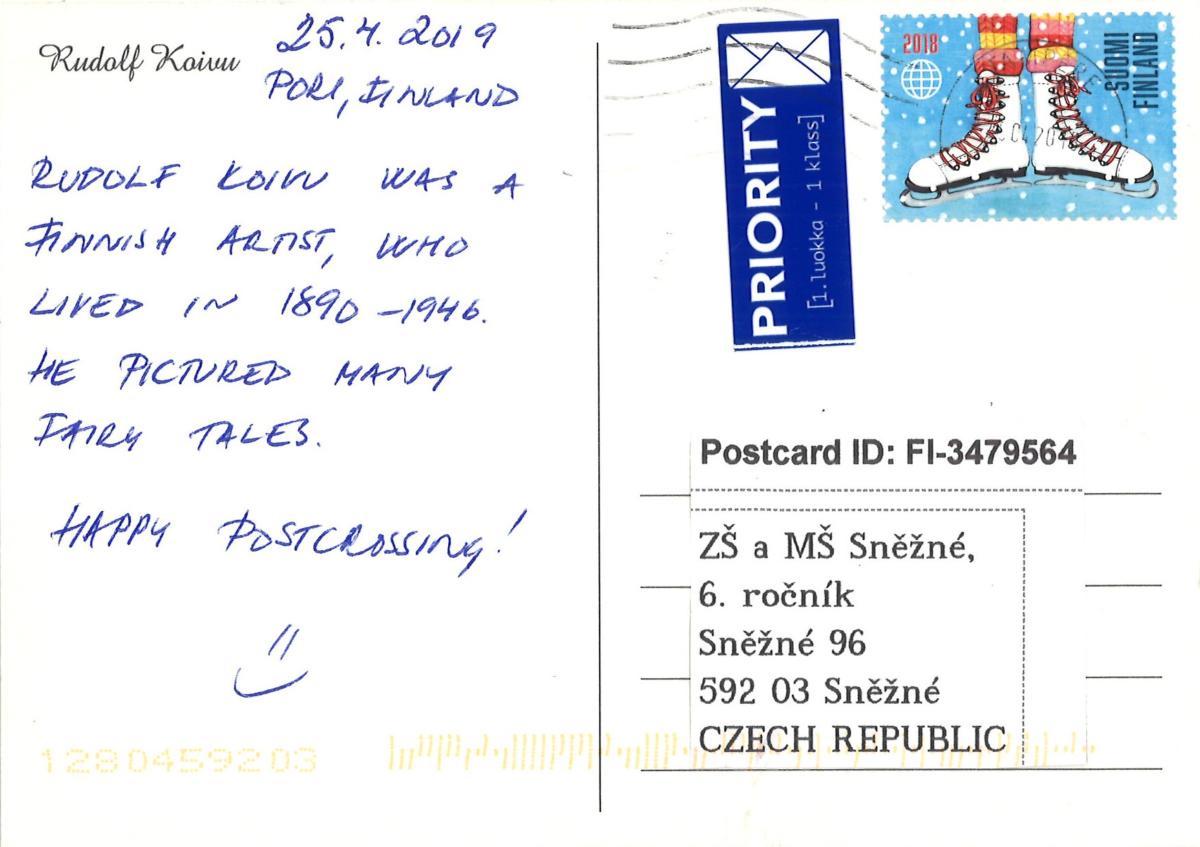 Rudolf Koivu
25.4.2019
PORI, FINLAND
RUDOLF KOIVU WAS A
FINNISH ARTIST, WHO
LIVED IN 1890-1946.
HE PICTURED MANY
FAIRY TALES.
HAPPY POSTCROSSING!
1280459203
PRIORITY
[1.luokka - 1 klass]
2018
SUOMI
FINLAND
Postcard ID: FI-3479564
ZŠ a MŠ Sněžné,
6. ročník
Sněžné 96
592 03 Sněžné
CZECH REPUBLIC